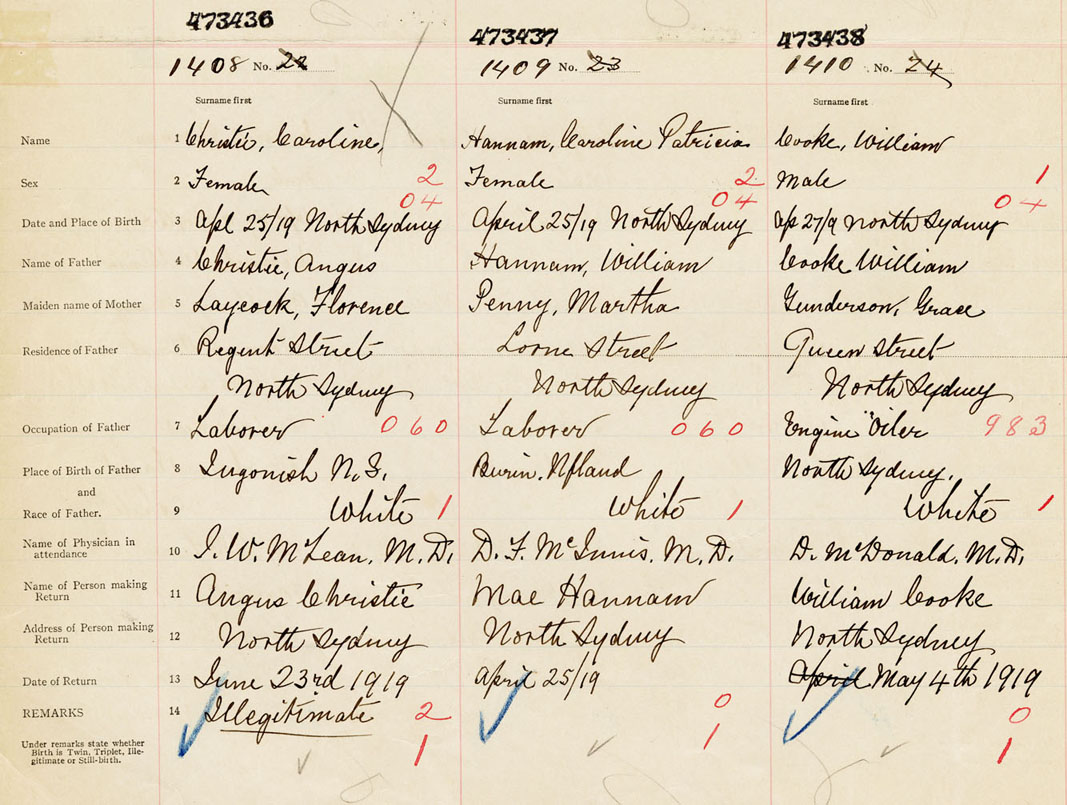 473436 473437 473438
1408 No. 22 1409 No. 23 1410 No. 24
Surname first Surname first Surname first
Name 1 Christie, Caroline, Hannam, Caroline Patricia Cooke, William
Sex 2 Female 2 Female 2 Male 1
04 04 04
Date and Place of Birth 3 Apl 25/19 North Sydney April 25/19 North Sydney Ap 27/9 North Sydney
Name of Father 4 Christie, Angus Hannam, William Cooke William
Maiden name of Mother 5 Laycock, Florence Penny, Martha Gunderson, Grace
Residence of Father 6 Regent Street Lorne Street Queen Street
North Sydney North Sydney North Sydney
Occupation of Father 7 Laborer 060 Laborer 060 Engine Oiler 983
Place of Birth of Father 8 Ingonish N.S. Burin, Nfland North Sydney.
and
Race of Father. 9 White 1 White 1 White 1
Name of Physician in
attendance 10 J. W. McLean, M.D. D. F. McInnis, M.D. D. McDonald, M.D.
Name of Person making
Return 11 Angus Christie Mae Hannam William Cooke
Address of Person making
Return 12 North Sydney North Sydney North Sydney
Date of Return 13 June 23rd 1919 April 25/19 April May 4th 1919
REMARKS 14 Illegitimate 2 0 0
Under remarks state whether
Birth is Twin, Triplet, Ille-
gitimate or Still-birth. 1 1 1